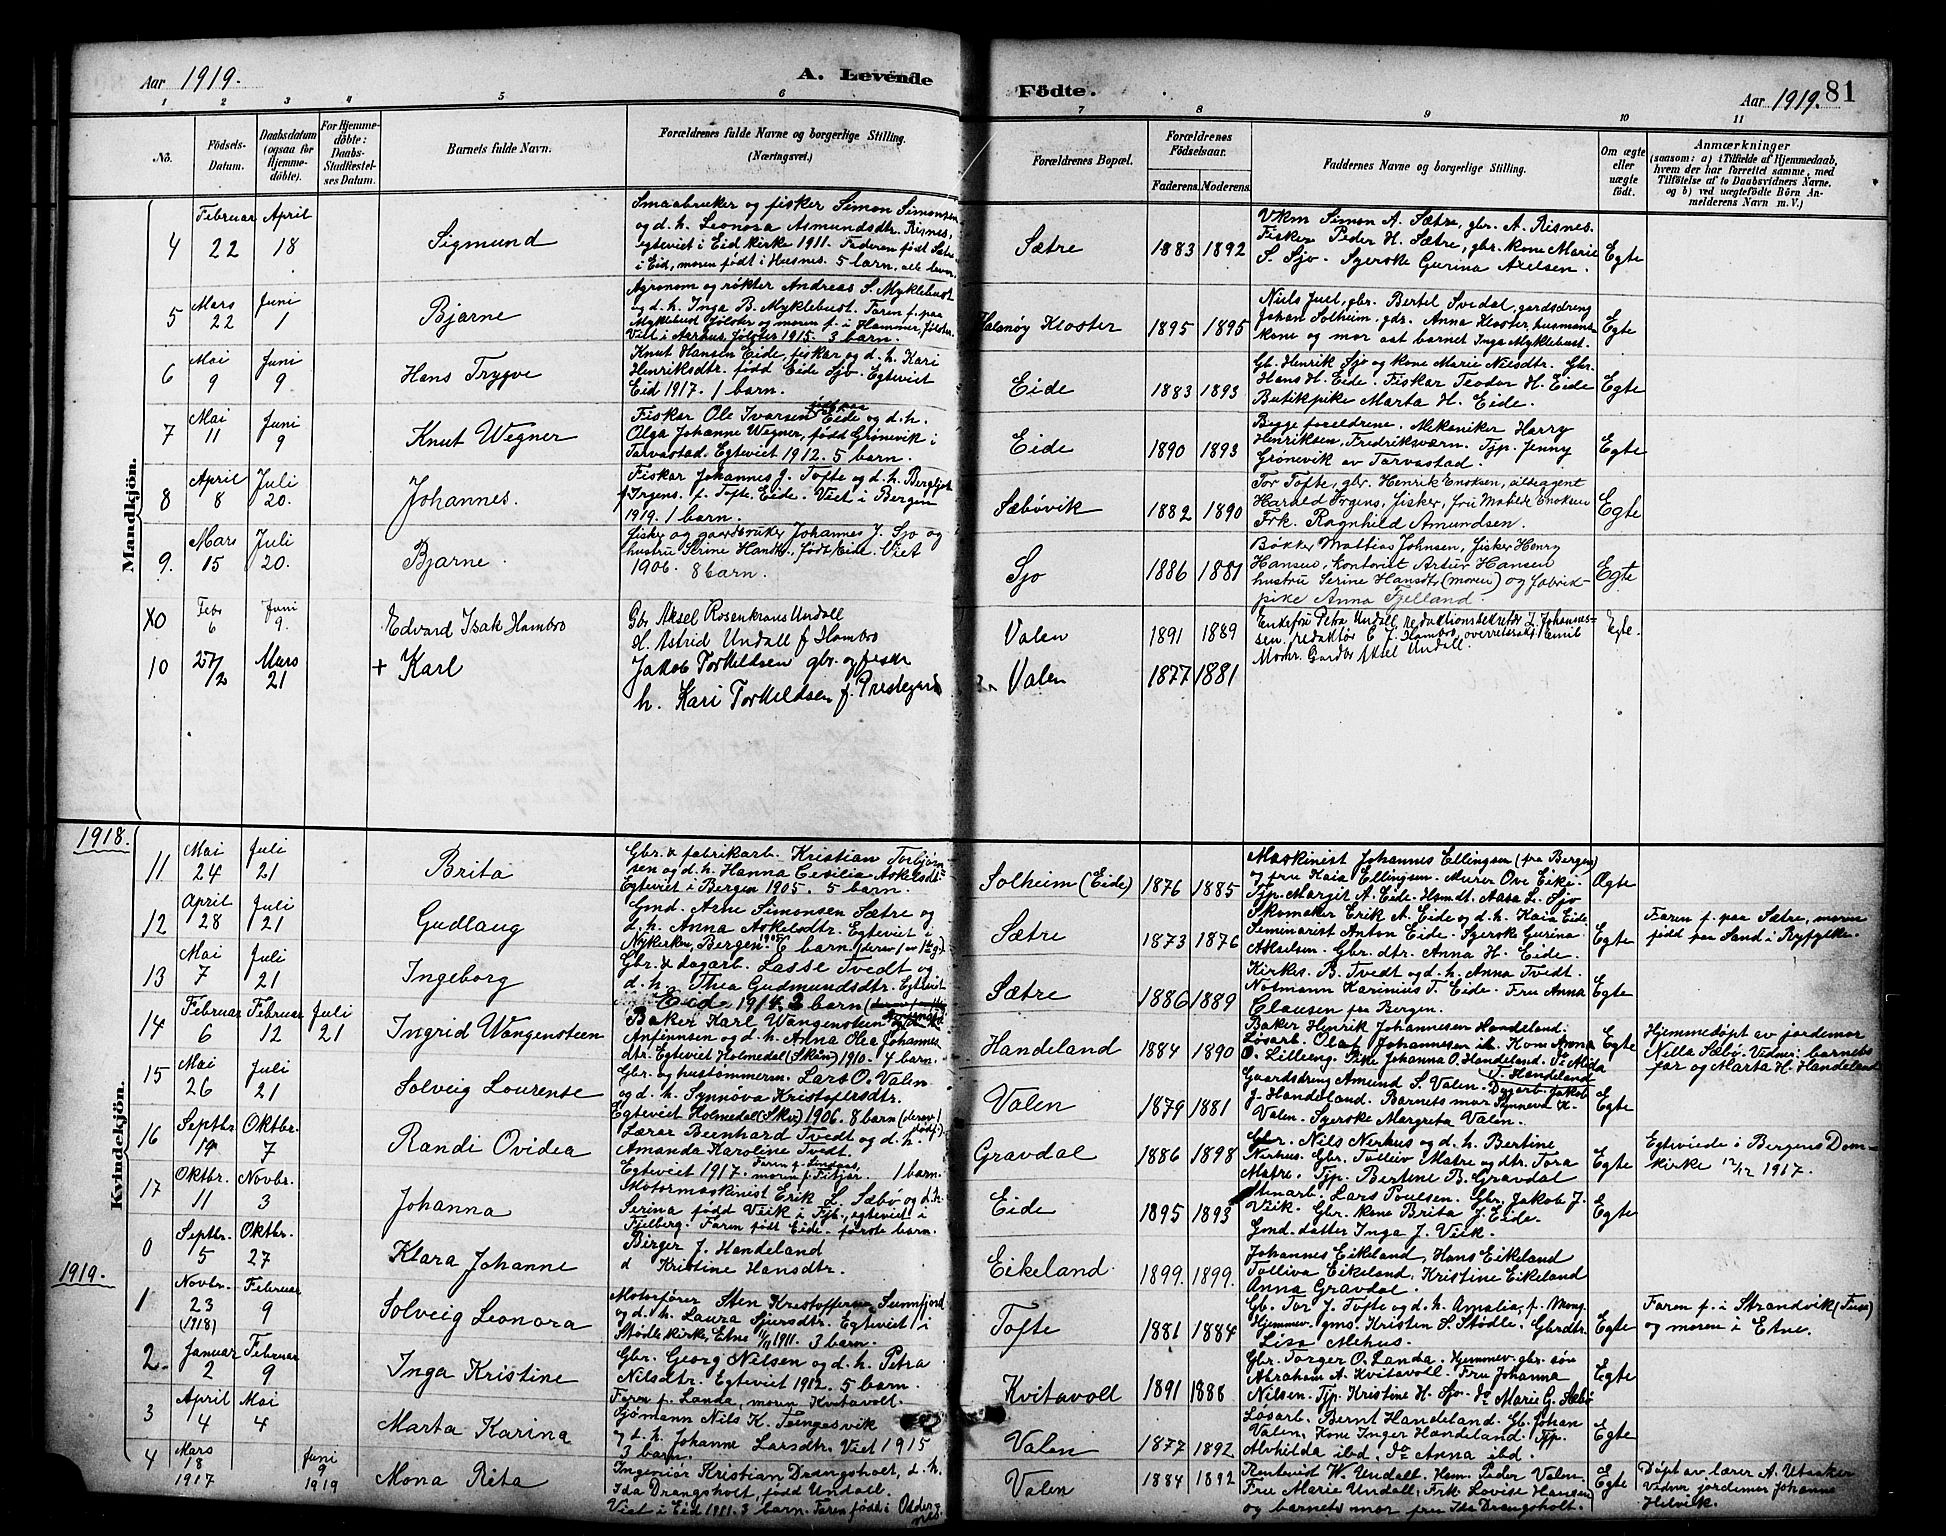 Aar 1919.
A. Levende
Födte.
Aar 1919.
81
1 2 3 4 5 6 7 8 9 10 11
No.
Födsels-Datum.
Daabsdatum (ogsaa for Hjemme-döbte).
For Hjemme-döbte: Daabs-Stadfæstel-ses Datum.
Barnets fulde Navn.
Forældrenes fulde Navne og borgerlige Stilling.
(Næringsvei.)
Forældrenes Bopæl.
Forældrenes Födselsaar.
Faderens. Moderens.
Faddernes Navne og borgerlige Stilling.
Om ægte eller uægte födt.
Anmærkninger
(saasom: a) i Tilfælde af Hjemmedaab,
hvem der har forrettet samme, med
Tilföielse af to Daabsvidners Navne,
og b) ved uægtefödte Börn An-
melderens Navn m. V.)
Mandkjön.
4 Februar 22 April 18 Sigmund
Smaabruker og fisker Simon Simonsen
og d. h. Leonora Asmundsdtr. Risnes,
egteviet i Eid kirke 1911. Faderen født Sætre
i Eid, moren født i Husnes. 5 barn, alle lever.
Sætre 1883 1892
Vkm Simon A. Sætre, gbr. A. Risnes.
Fisker Peder H. Sætre, gbr. kone Marie
S. Sjo. Syerske Gurina Axelsen.
Egte
5 Mars 22 Juni 1 Bjarne
Agronom og røkter Andreas S. Myklebust
og d. h. Inga B. Myklebust. Faren f. paa
Myklebust Jølster og moren f. i Hammer, Jølster.
Viet i Aarhus Jølster 1915. 3 barn.
Halsnøy Kloster 1895 1895
Niels Juel, gbr. Bertel Svedal, gardsdreng
Johan Solheim, gdr. Anna Kloster, husmands
kone og mor aat barnet Inga Myklebust.
Egte
6 Mai 9 Juni 9 Hans Trygve
Knut Hansen Eide, fiskar og d. h. Kari
Henriksdtr. født Eide Sjo. Egteviet
Eid 1917. 1 barn.
Eide 1883 1893
Gb. Henrik Sjo og kone Marie Nielsdtr. Gbr.
Hans H. Eide. Fiskar Teodor H. Eide
Butikpike Marta H. Eide.
Egte
7 Mai 11 Juni 9 Knut Wegner
Fiskar Ole Ivarsen født paa Eide og d. h.
Olga Johanne Wegner, født Grønevik i
Tarvastad. Egteviet 1912. 5 barn.
Eide 1890 1893
Begge foreldrene. Mekaniker Harry
Henriksen, Fredriksværn. Tjp. Jenny
Grønevik av Tarvastad.
Egte
8 April 8 Juli 20. Johannes.
Fiskar Johannes J. Tofte og d. h. Bergljot
f. Irgens. f. Tofte, Eide. Viet i Bergen
1919. 1 barn.
Sæbövik 1882 1890
Tor Tofte, gbr. Henrik Enoksen, altsagent
Harald Irgens, fisker, fru Matilde Enoksen
Frk. Ragnhild Amundsen.
Egte
9. Mars 15 Juli 20. Bjarne.
Fisker og gaardbruker Johannes J. Sjo og
hustru Serine Hansdtr., født Eide. Viet
1906. 8 barn.
Sjo 1886 1881
Bøkker Mattias Johnsen, fisker Henry
Hansen, kontorist Artur Hansen
hustru Serine Hansdtr (moren) og fabrik-
pike Anna Fjelland.
Egte
X0 Febr 6 Juni 9. Edvard Isak Hambro
Gbr Aksel Rosenkrans Undall
H. Astrid Undall f Hambro
Valen 1891 1889
Enkefru Petra Undall, redaktionssekretær J. Johannes-
sen, redaktør C J. Hambro, overretssakf. Emil
Mohr. Gardbr Aksel Undall.
Egte.
10 27/2 Mars 21 + Karl
Jakob Torkeldsen gbr. og fisker
h. Kari Torkeldsen f. Prestegard
Valen 1877 1881
Kvindekjön.
1918.
11 Mai 24 Juli 21 Brita
Gbr. & fabrikarb. Kristian Torbjørn-
sen og d. h. Hanna Cesilia Askelsdtr.
Egteviet i Bergen 1905. 5 barn.
Solheim (Eide) 1876 1885
Maskinist Johannes Ellingsen (fra Bergen)
og fru Kaia Ellingsen. Murer Ove Eike.
Tjp. Margit A. Eide. Hsmdt. Aasa L. Sjo
Ægte
12 April 28 Juli 21 Gudlaug
Gmd. Arne Simonsen Sætre og
d. h. Anna Askelsdtr. Egteviet i
Nykirken, Bergen 1905. 6 barn (derav 1 av 1ste g.)
Sætre 1873 1876
Skomaker Erik A. Eide og d. h. Kaia Eide
Seminarist Anton Eide. Syerske Gurina
Akselsen. Gbr. dtr. Anna H. Eide.
Egte
Faren f. paa Sætre, moren
født paa Sand i Ryfylke.
13 Mai 7 Juli 21 Ingeborg
Gbr. & dagarb. Lasse Tvedt og
d. h. Thea Gudmundsdtr. Egteviet
Eid 1914. 3 barn
Sætre 1886 1889
Kirkes. B. Tvedt og d. h. Anna Tvedt.
Notmann Karinius T. Eide. Fru Anna
Clausen fra Bergen.
Egte
14 Februar 6 Februar 12 Juli 21 Ingrid Wangensteen
Baker Karl Wangensteen
Anfinnsen og d. h. Anna Olea Johannes
dtr. Egteviet Holmedal (Skån) 1910. 4 barn.
Handeland 1884 1890
Baker Henrik Johannesen Handeland.
Løsarb. Olaf Johannesen ib. Kone Anna
O. Lilleeng. Pike Johanna O. Handeland. Do Alida
T. Handeland
Egte
Hjemmedøpt av jordemor
Nilla Sæbö. Vidner: barnets
far og Marta H. Handeland
15 Mai 26 Juli 21 Solveig Lourense
Gbr. og hustømmerm. Lars O. Valen
og d. h. Synnøva Kristofersdtr.
Egteviet Holmedal (Skån) 1906. 8 barn (derav 1 dødf.)
Valen 1879 1881
Gaardsdreng Amund S. Valen. Dagarb. Jakob
J. Handeland. Barnets mor Synneva K.
Valen. Syerske Margreta Valen.
Egte
16 Septbr. 19 Oktbr. 7 Randi Ovidea
Lærer Bernhard Tvedt og d. h.
Amanda Karoline Tvedt.
Egteviet 1917. Faren f. Lindaas, moren f. Fitjar. 1 barn.
Gravdal 1886 1898
Gbr. Nils Nerhus og d. h. Bertine
Nerhus. Gbr. Tolleiv Matre og dtr. Tora
Matre. Tjp. Bertine B. Gravdal
Egte
Egteviede i Bergens Dom-
kirke 12/12 1917.
17 Oktbr. 11 Novbr. 3 Johanna
Motormaskinist Erik L. Sæbø og d. h.
Serina født Veik i Fjb., egteviet i
Fjelberg. Faren født Eide. første barn.
Eide 1895 1893
Stenarb. Lars Poulsen. Gbr. Jakob J.
Veik. Gbr. kone Brita J. Eide.
Gmd. datter Inga J. Veik.
Egte
0 Septbr. 5 Oktbr. 27 Klara Johanne
Birger J. Handeland
d Kristine Hansdtr.
Eikeland. 1899. 1899.
Johannes Eikeland, Hans Eikeland
Tolliva Eikeland, Kristine Eikeland
Anna Gravdal.
1919.
1 Novbr. 23 (1918) Februar 9 Solveig Leonora
Motorfører Sten Kristoffersen Sunnfjord
og d. h. Laura Sjursdtr. Egteviet i
Stødle kirke, Etne 1911. 3 barn.
Tofte 1881 1884
Gb. Tor J. Tofte og d. h. Amalia, f. Mong.
Hjemmev. gms. Kristen S. Stödle. Gbrdtr.
Lisa Mehus.
Egte
Faren f. i Strandvik (Fuse)
og moren i Etne.
2. Januar 2 Februar 9 Inga Kristine
Gbr. Georg Nilsen og d. h. Petra
Nilsdtr. Egteviet 1912. 5 barn.
Faren f. Landa, moren Kvitavoll.
Kvitavoll 1891 1888
Gbr. Torger O. Landa. Hjemmev. gbr. søn
Abraham A. Kvitavoll. Fru Johanna
Nilsen. Tjp. Kristine H. Sjo. Do Marie G. Sæbø
Egte
3 April 4 Mai 4 Marta Karina
Sjömann Nils K. Teingesvik
og d. h. Johanne Larsdtr. Viet 1915
3 barn.
Valen 1877 1892
Løsarb. Bernt Handeland. Gb. Johan
Valen, Kone Inger Handeland. Tjp.
Alvhilda ibd. Do Anna ibd.
Egte
4 Mars 18 1917 Juni 9 1919 Mona Rita
Ingeniør Kristian Drangsholt, d. h.
Ida Drangsholt, født Undall.
Viet i Eid 1911. 3 barn. Faren født i Oddernes.
Valen 1884 1892
Rentenist W. Undall. Hm. Peder Valen.
Fru Marie Undall, Frk Lovise Hansen
og barnets mor fru Ida Drangsholt.
Egte
Döpt av lærer A. Utaaker
Vidner jordemor Johanne
Helvik.